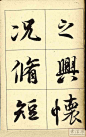 之興懷
况脩短